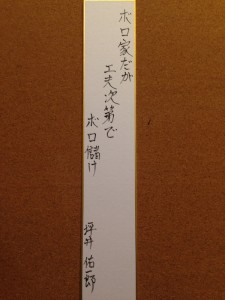 ボロ家だが
工夫次第で
ボロ儲け
坪井佑一郎